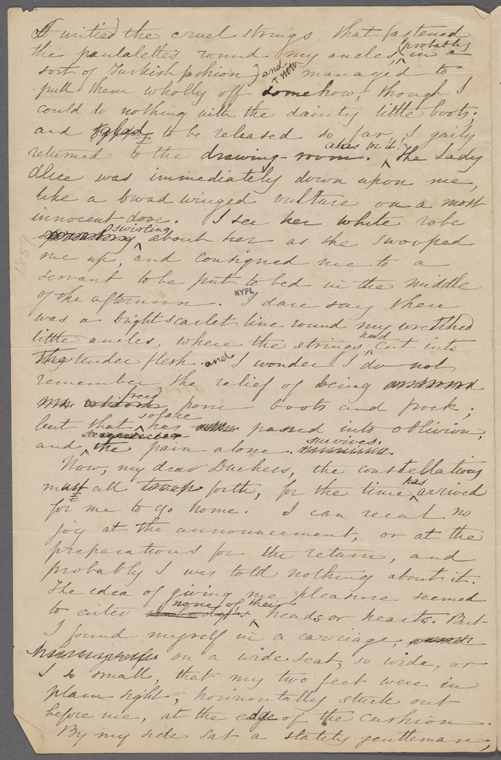 I untied the cruel strings that fastened
the pantalettes round my ancles, (probably in a
sort of Turkish fashion,) and managed to
pull them wholly off somehow, though I
could do nothing with the dainty little boots;
and to be released so far, I gaily
returned to the drawing-room. alas for it! The Lady
Alice was immediately down upon me,
like a broad winged vulture on a most
innocent dove. I see her white robe
swirling about her as she swooped
me up, and consigned me to a
servant to be put to bed in the middle
NYPL
of the afternoon. I dare say there
was a bright scarlet line round my wretched
little ancles, where the strings had cut into
the tender flesh. and I wonder I do not
remember the relief of being
freed from boots and frock;
but that solace has passed into oblivion,
and the pain alone survives.
Now, my dear Duchess, the constellations
must all forth, for the time has arrived
for me to go home. I can recal no
joy at the announcement, or at the
preparations for the return, and
probably I was told nothing about it.
The idea of giving me pleasure seemed
to enter none of their heads or hearts. But
I found myself in a carriage,
on a wide seat, so wide, or
I so small, that my two feet were in
plain sight, horizontally stuck out
before me, at the edge of the cushion.
By my side sat a stately gentleman,
1859